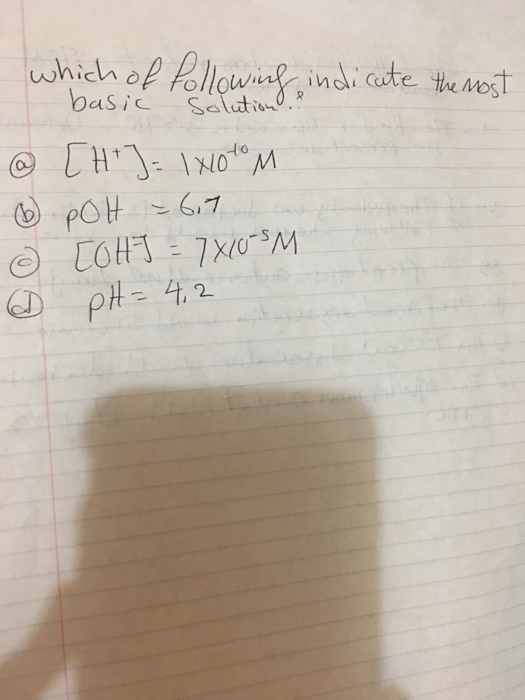 which of following indicate the most
basic solution?
(a) [H⁺] = 1x10⁻¹⁰ M
(b) pOH = 6.7
(c) [OH⁻] = 7x10⁻⁵ M
(d) pH = 4.2